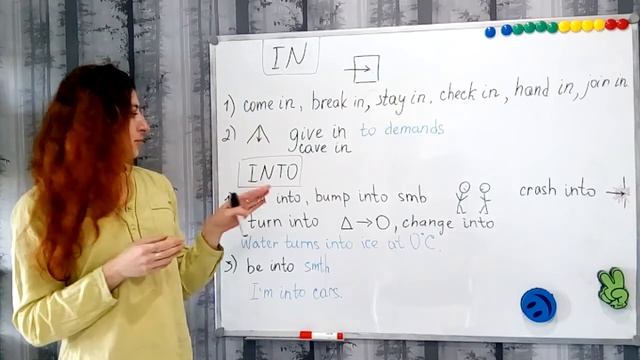 IN
1) come in, break in, stay in, check in, hand in, join in
2) give in to demands
cave in
INTO
into, bump into smb crash into
turn into △→○, change into
Water turns into ice at 0°C.
3) be into smth
I'm into cars.